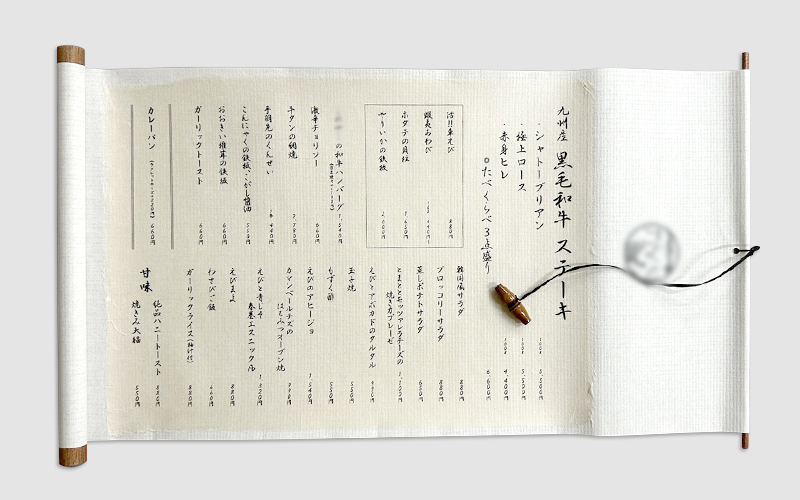 九州産 黒毛和牛 ステーキ
・シャトーブリアン 100g 5,500円
・極上ロース 100g 5,500円
・赤身ヒレ 100g 4,400円
○たべくらべ3点盛り 6,600円
活!!車えび 880円
蝦夷あわび
ホタテの貝柱 1,650円
やりいかの鉄板 2,600円
の和牛ハンバーグ 1,540円
激辛チョリソー 660円
牛タンの網焼 2,780円
手羽先のくんせい 440円
こんにゃくの鉄板、こがし醤油 550円
おおきい椎茸の鉄板 660円
ガーリックトースト 660円
カレーパン 660円
韓国風サラダ 880円
ブロッコリーサラダ 880円
蒸しポテトサラダ 650円
とまととモッツァレラチーズの
焼きカプレーゼ 1,100円
えびとアバカドのタルタル 990円
玉子焼 550円
もずく酢 550円
えびのアヒージョ 1,540円
カマンベールチーズの
はちみつオーブン焼 990円
えびと青じそ
春巻エスニック風 1,320円
えびまよ 880円
わさびご飯 660円
ガーリックライス(汁付) 880円
甘味
絶品ハニートースト 880円
焼きみ大福 550円